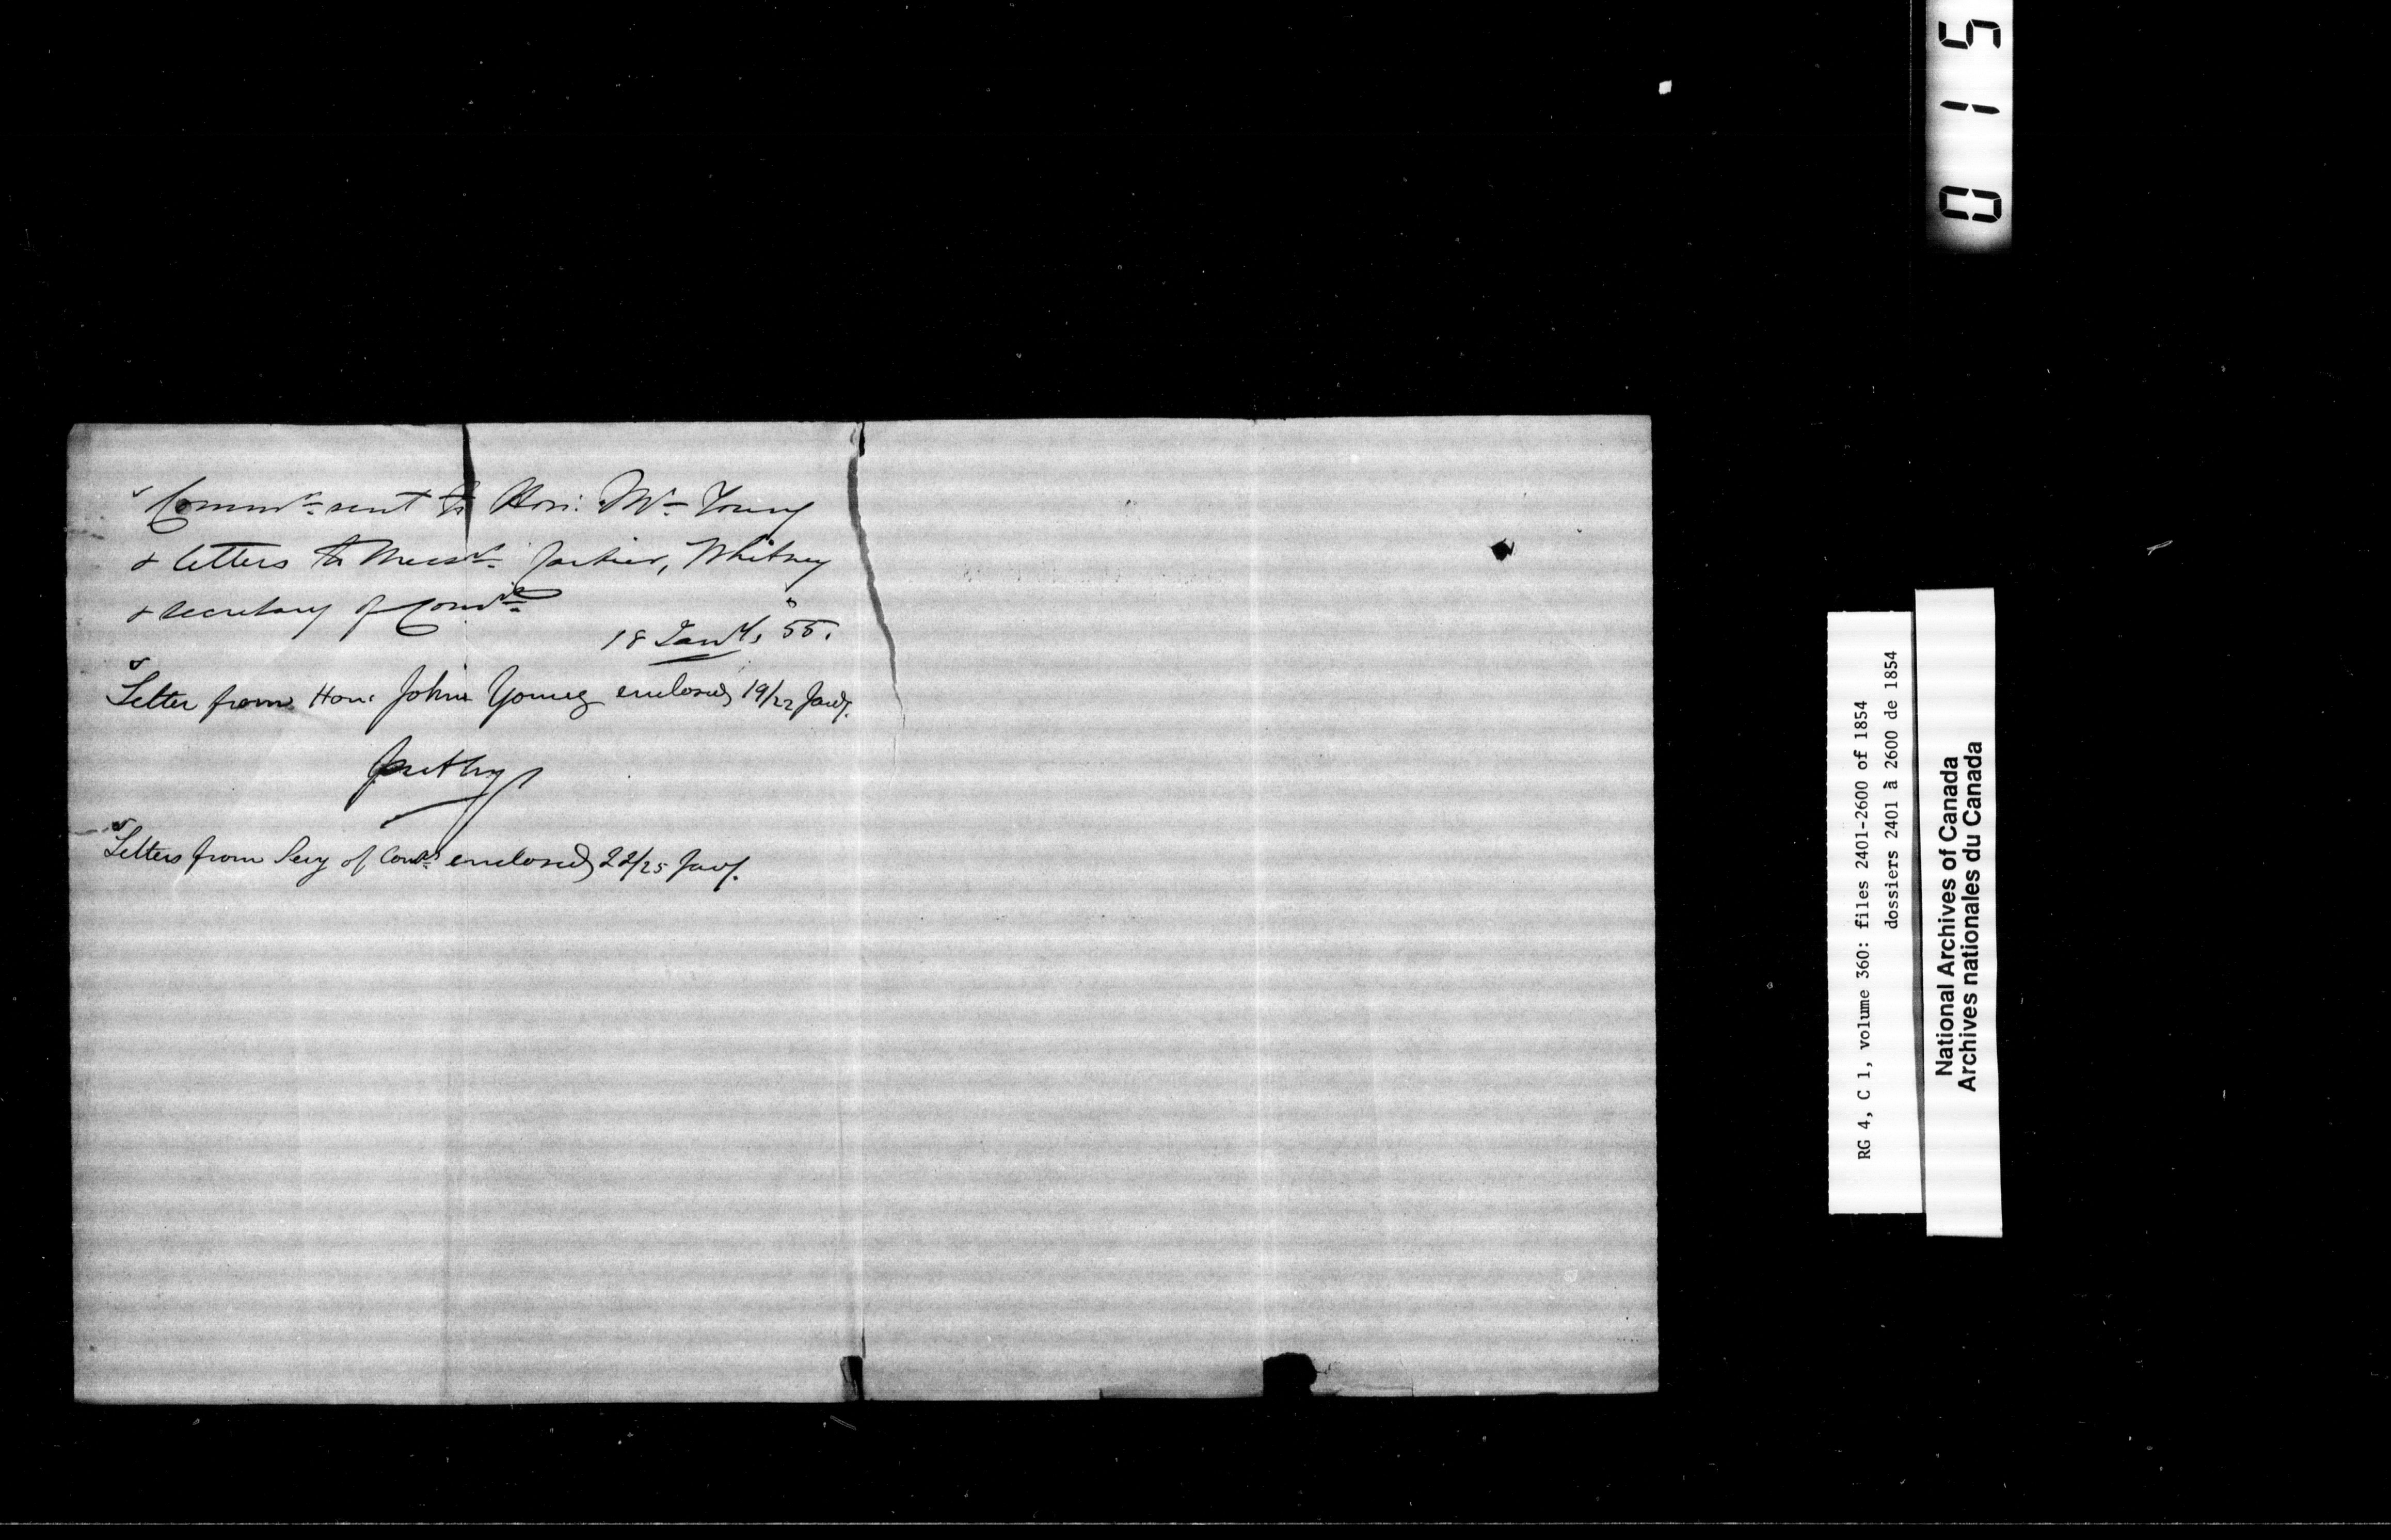 Commn sent to Hon: Mr Young
& letters to Messrs Cartier, Whitney
& secretary of Comrs
18 Jany, 55.
Letter from Hon: John Young enclosed 19/22 Jany.
Letters from Secy of Comrs enclosed 22/25 Jany.
015
RG 4, C 1, volume 360: files 2401-2600 of 1854
dossiers 2401 à 2600 de 1854
National Archives of Canada
Archives nationales du Canada